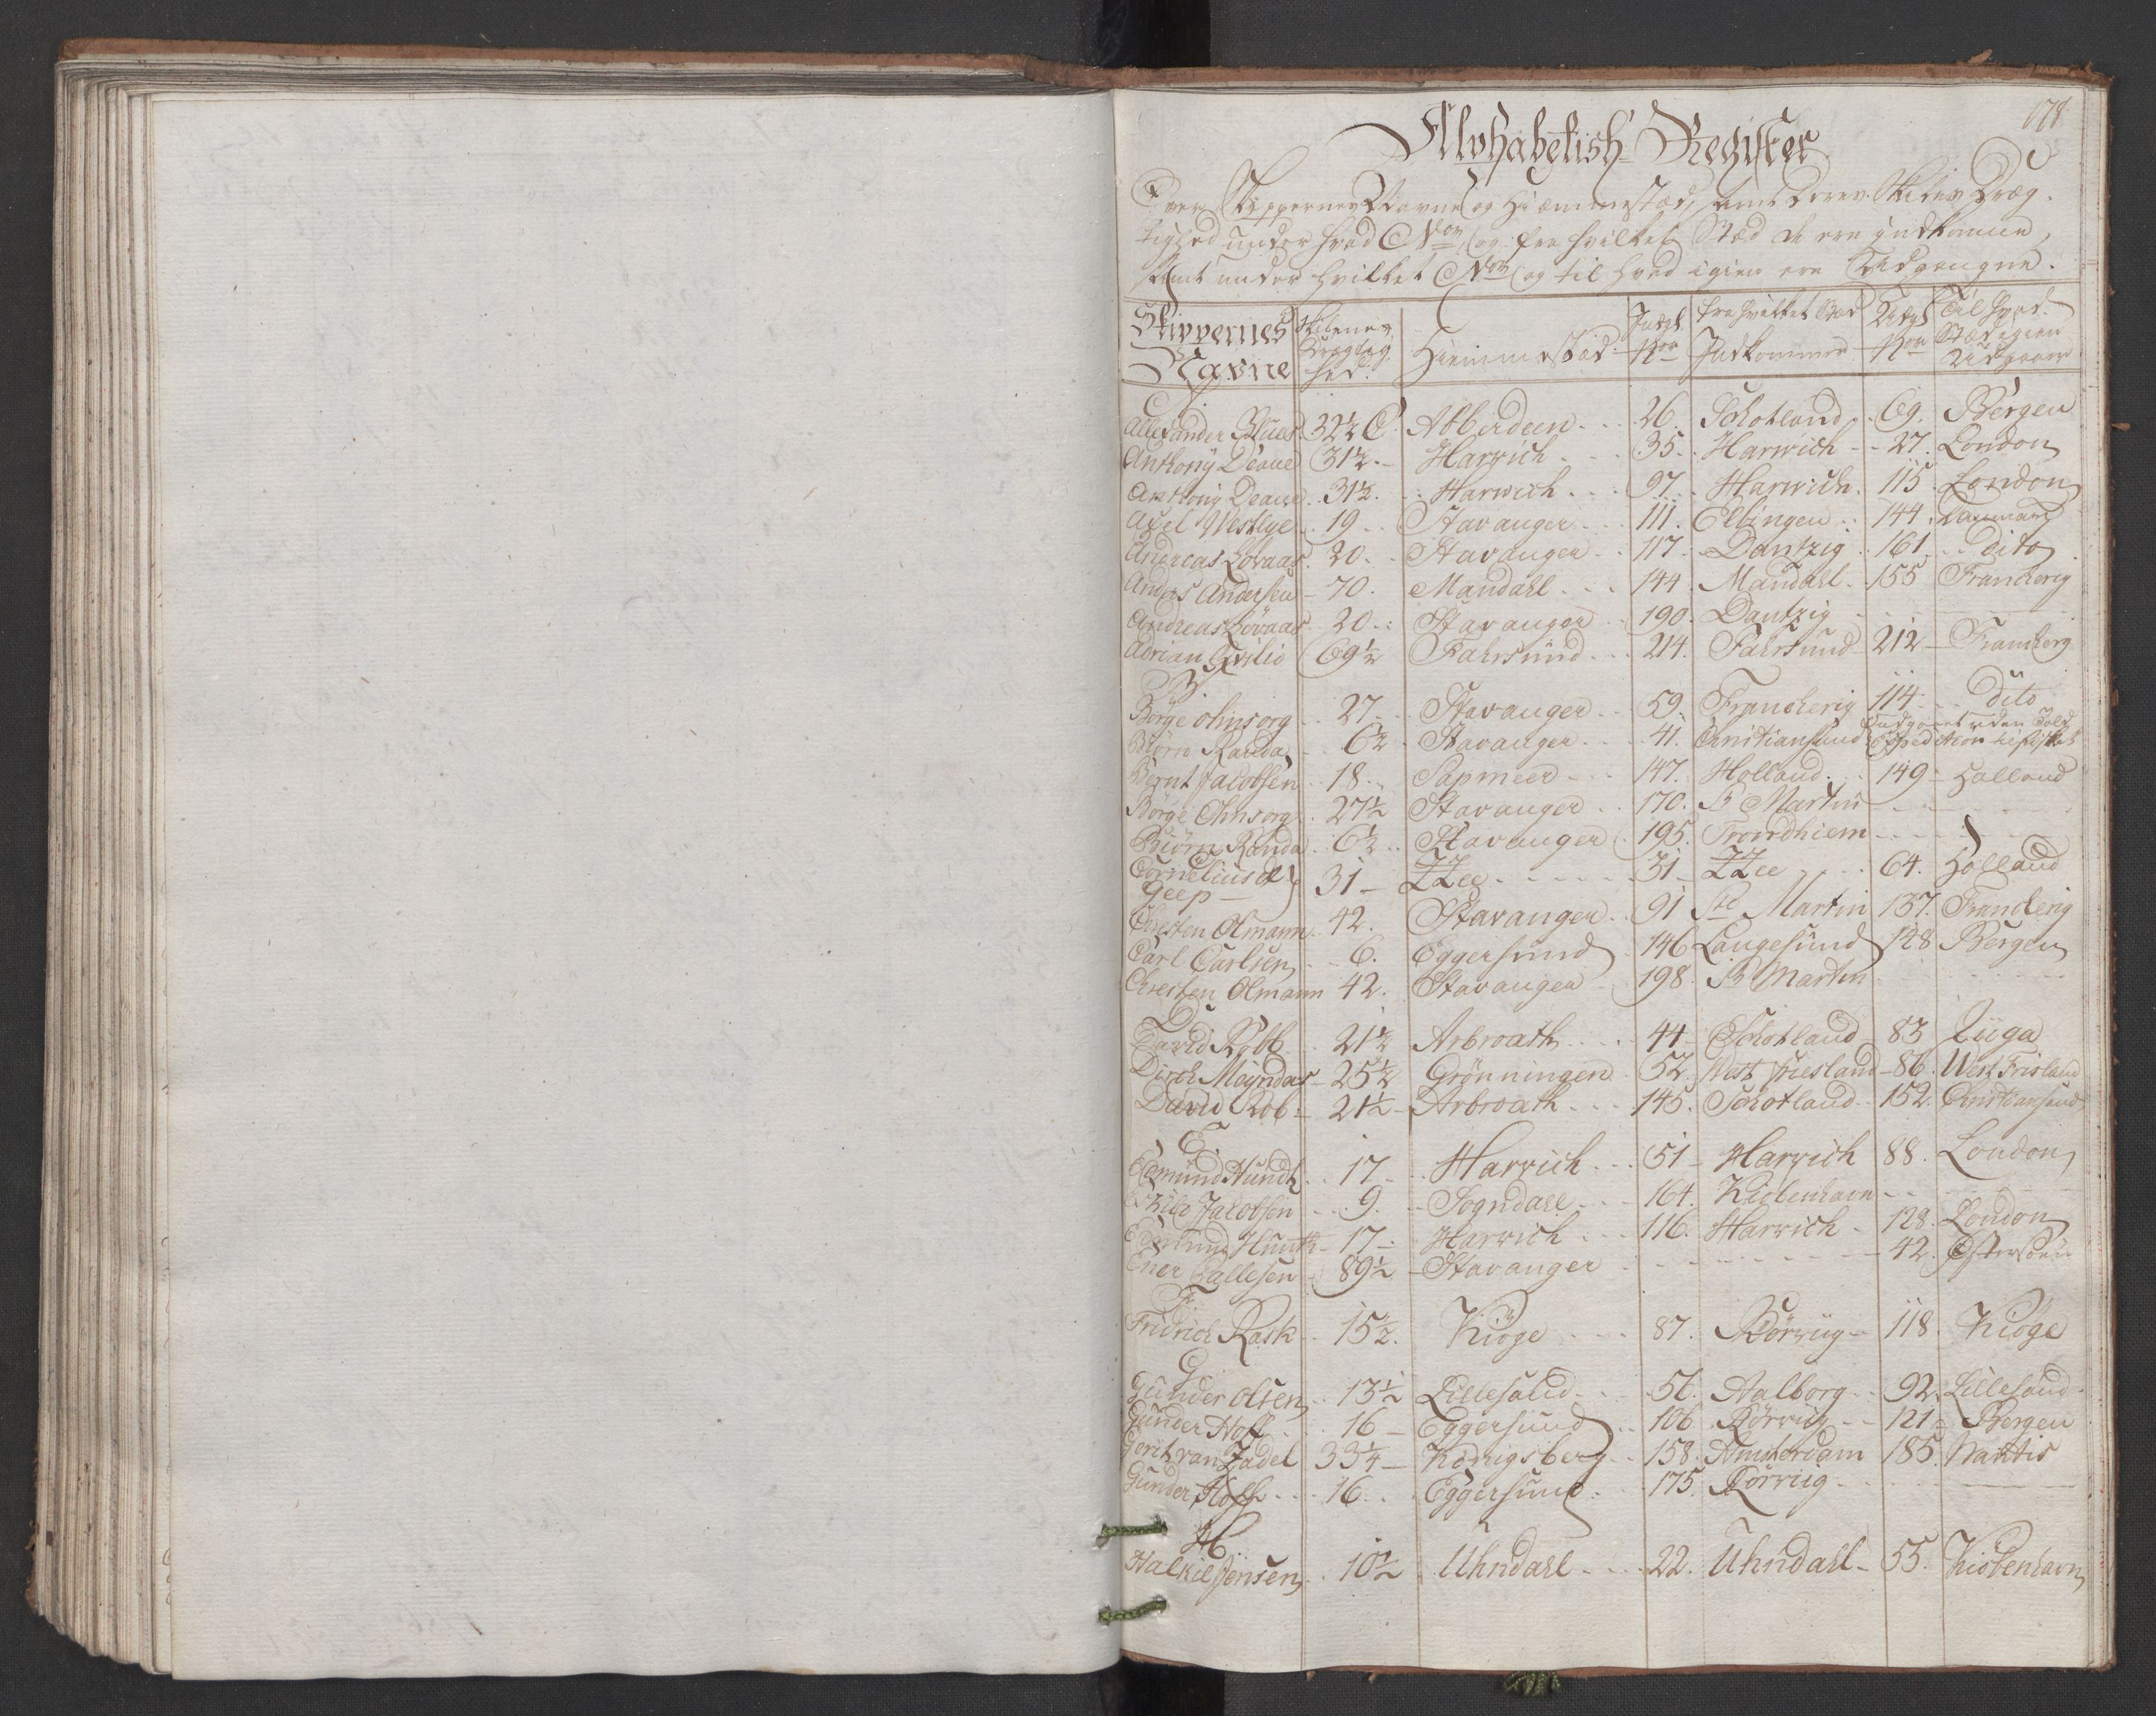 178
Alphabetisk Register
Over Skippernes Navne og Hiemmestæd, samt deres Skibes Dræg-
tighed under hvad No og fra hvilket Stæd de ere indkomne,
samt under hvilket No og til hvad igien ere Udgangne.
Skippernes Navne | Skibenes Drægtighed | Hiemmestæd | Indg. No | fra hvilket Stæd Indkommer | Udg. No | Til hvad Stæd igien Udgaaer
Allexander | 32½ C | Abberdeen | 26. | Schotland | 69. | Bergen
Anthony Deane | 31½ | Harwich | 35 | Harwich | 27. | London
Anthony Deane | 31½ | Harwich | 97 | Harwich | 115 | London
Axel Westlye | 19 | Stavanger | 111. | Elbingen | 144 | Danmark
Andreas Lovaas | 20 | Stavanger | 117 | Dantzig | 161 | dito
Anders Andersen | 70. | Mandahl | 144 | Mandahl | 155 | Franckerig
Andreas Lövaas | 20 | Stavanger | 190. | Dantzig
Adrian | 69½ | Fahrsund | 214. | Fahrsund | 212 | Franckerg
B.
Börge Ohnsorg | 27 | Stavanger | 59. | Franckerig | 114 | dito
Biörn Randa | 6½ | Stavanger | 41. | Christiansund | Undgaaet uden Told Expedition til fiskes
Bernt Jacobsen | 18 | Sapmeer | 147. | Holland | 149 | Holland
Börge Ohnsorg | 27½ | Stavanger | 170. | St Martin
Biörn Randa | 6½ | Stavanger | 195. | Trondhiem
Cornelius de
Geep | 31 | ZZee | 31 | ZZee | 64. | Holland
Christen Olmann | 42. | Stavanger | 91 | St Martin | 137. | Franckerig
Carl Carlsen | 6. | Eggersund | 146 | Langesund | 128 | Bergen
Christen Olmann | 42. | Stavanger | 198 | St Martin
D
David Robb | 21½ | Arbroath | 44 | Schotland | 83 | Riiga
Dirck Meyndas | 25½ | Grönningen | 52. | West Friesland | 86. | West Frisland
David Rob | 21½ | Arbroath | 145. | Schotland | 152. | Christiansund
E
Edmund Hundt | 17 | Harwich | 51 | Harwich | 88. | London
Jacobsen | 9. | Sogndahl | 164. | Kiobenhavn
Edmund Hunth | 17 | Harwich | 116. | Harwich | 128. | London
Ener Callesen | 89½ | Stavanger | 42. | Östersöen
F
Fridrich Rask | 15½ | Kiöge | 87. | Rörviig | 118. | Kiöge
G
Gunder Olsen | 13½ | Lillesand | 56. | Aalborg | 92. | Lillesand
Gunder Hoff | 16 | Eggersund | 106 | Rörviig | 121 | Bergen
Gerit van Zadel | 33¼ | Königsberg | 158. | Amsterdam | 185. | Nantis
Gunder Hoff | 16. | Eggersund | 175. | Rörviig
H.
Halkil Jensen | 10½ | Uhndahl | 22. | Uhndahl | 55. | Kiöbenhavn